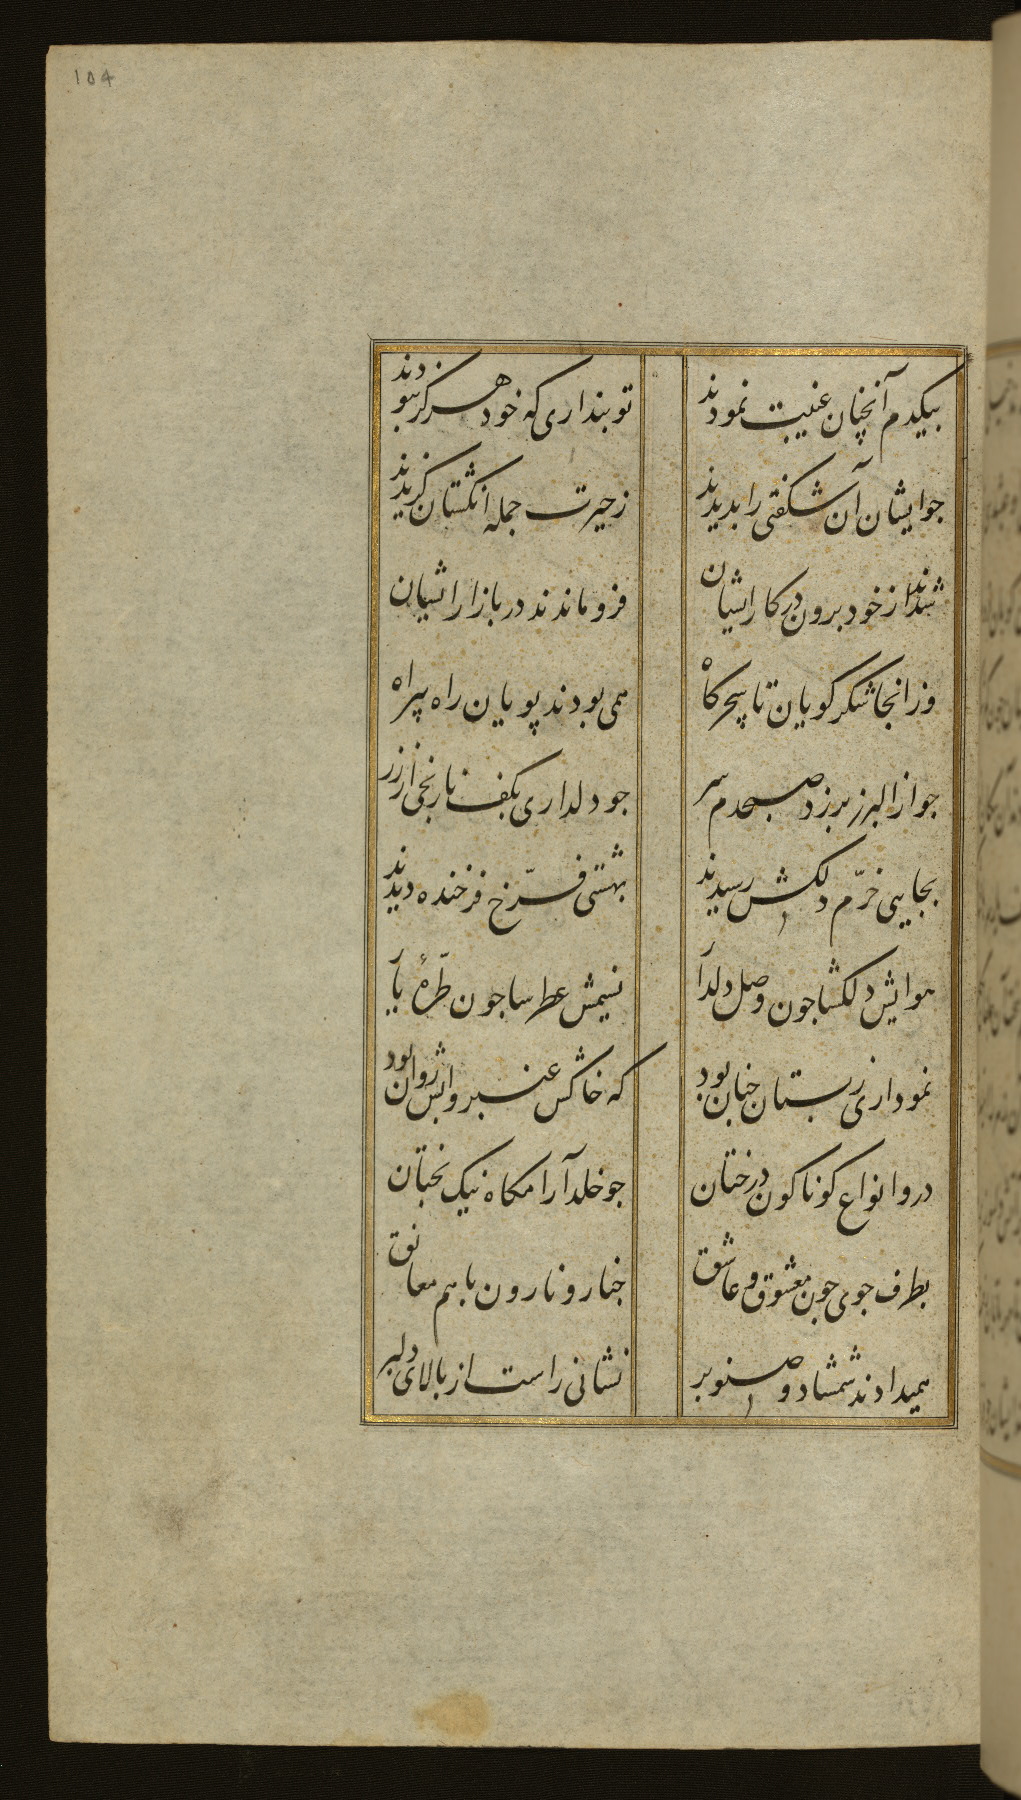 ۱۵۴
بیکدم آنچنان غیبت نمودند
تو بنداری که خود هرگز نبودند
جو ایشان آن شکفتی را بدیدند
ز حیرت جمله انکشتان گزیدند
شدند از خود برون در کار ایشان
فرو ماندند در بازار ایشان
وز انجا شکر کویان تا سحرکاه
همی بودند پویان راه بیراه
جو از البرز برزد صبحدم سر
جو دلداری بکف نارنجی از زر
بجایی خرّم دلکش رسیدند
بهشتی فرّخ فرخنده دیدند
هوایش دلکشا جون وصل دلدار
نسیمش عطرسا جون طرّهٔ یار
نموداری ز بستان جنان بود
که خاکش عنبر و آبش روان بود
درو انواع کوناکون درختان
جو خلد آرامکاه نیک بختان
بطرف جوی جون معشوق و عاشق
جنار و نارون با هم معانق
همیدادند شمشاد و صنوبر
نشانی راست از بالای دلبر